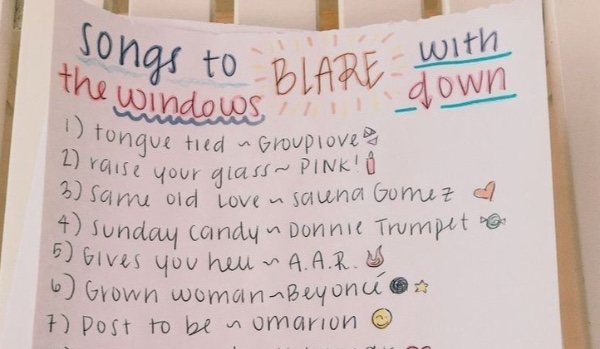 songs to BLARE with
the windows down
1) tongue tied ~ Grouplove
2) raise your glass ~ PINK!
3) same old love ~ saleena Gomez
4) sunday candy ~ Donnie Trumpet
5) Gives you hell ~ A.A.R.
6) Grown woman ~ Beyoncé
7) post to be ~ omarion